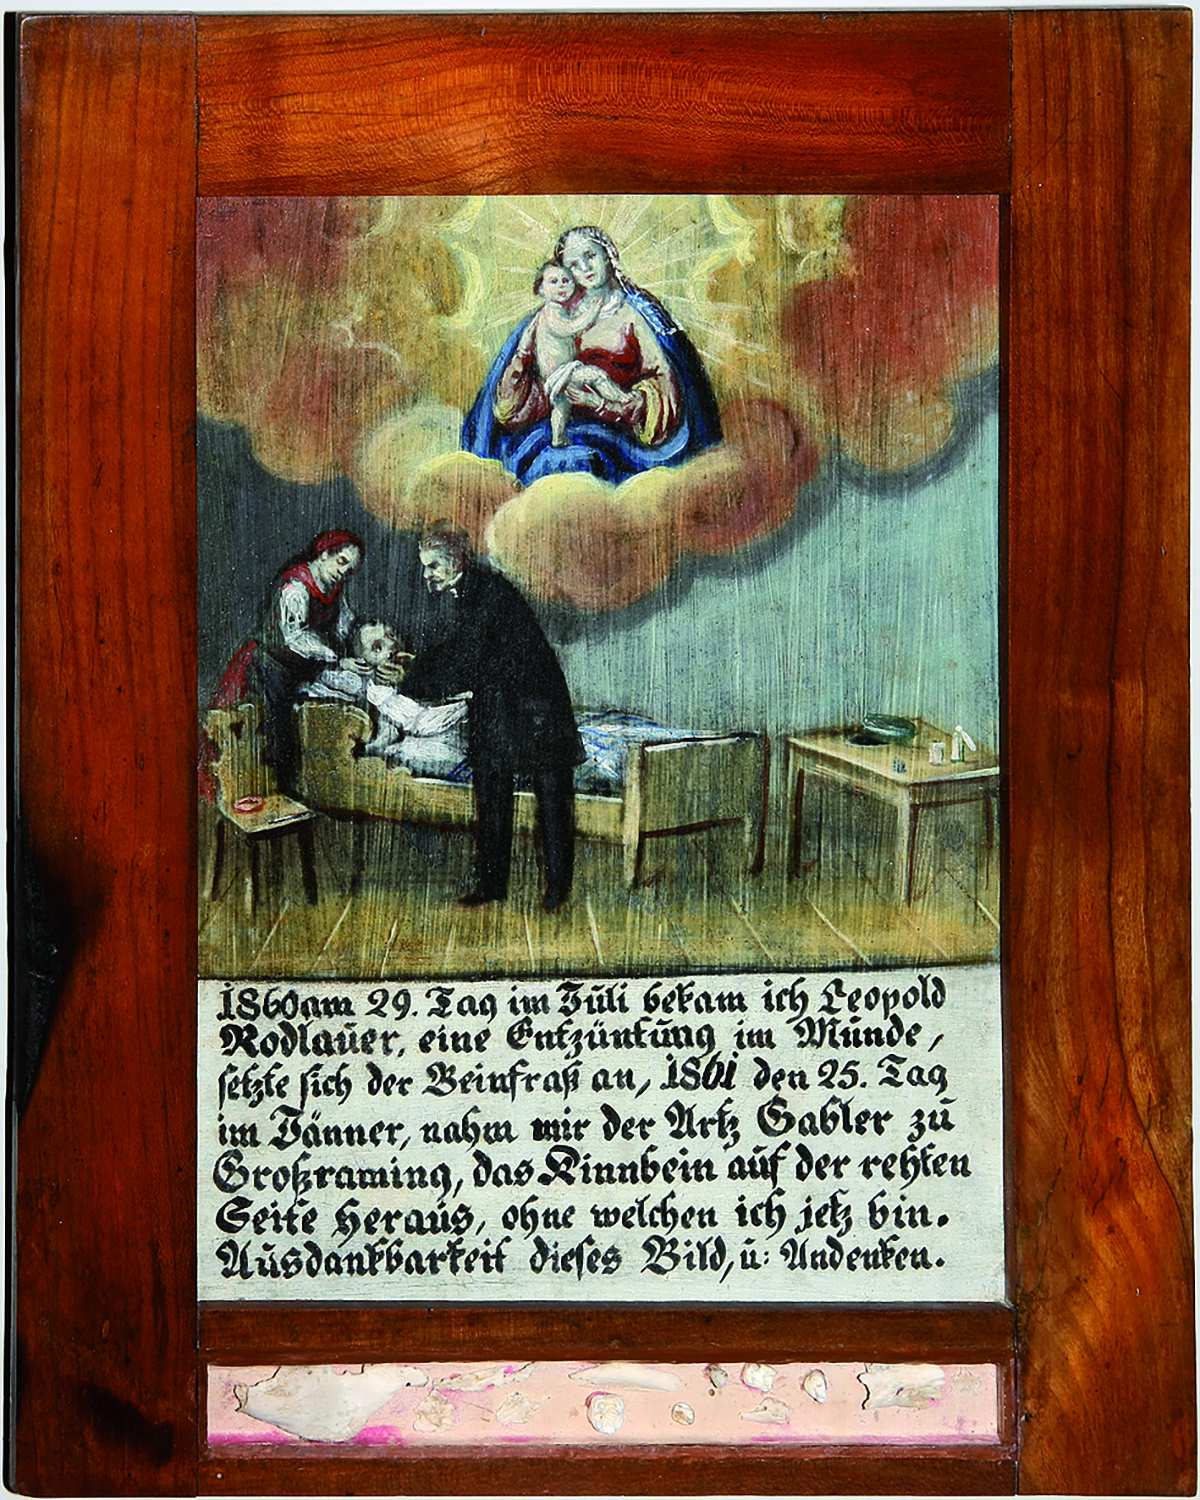 1860 am 29. Tag im Jůli bekam ich Leopold
Rodlaůer, eine Entzüntůng im Můnde,
setzte sich der Beinfraß an, 1861 den 25. Tag
im Jänner, nahm mir der Artz Gabler zů
Großraming, das Kinnbein aůf der rehten
Seite Heraůs, ohne welchen ich jetz bin.
Aůsdankbarkeit dieses Bild, ů: Andenken.